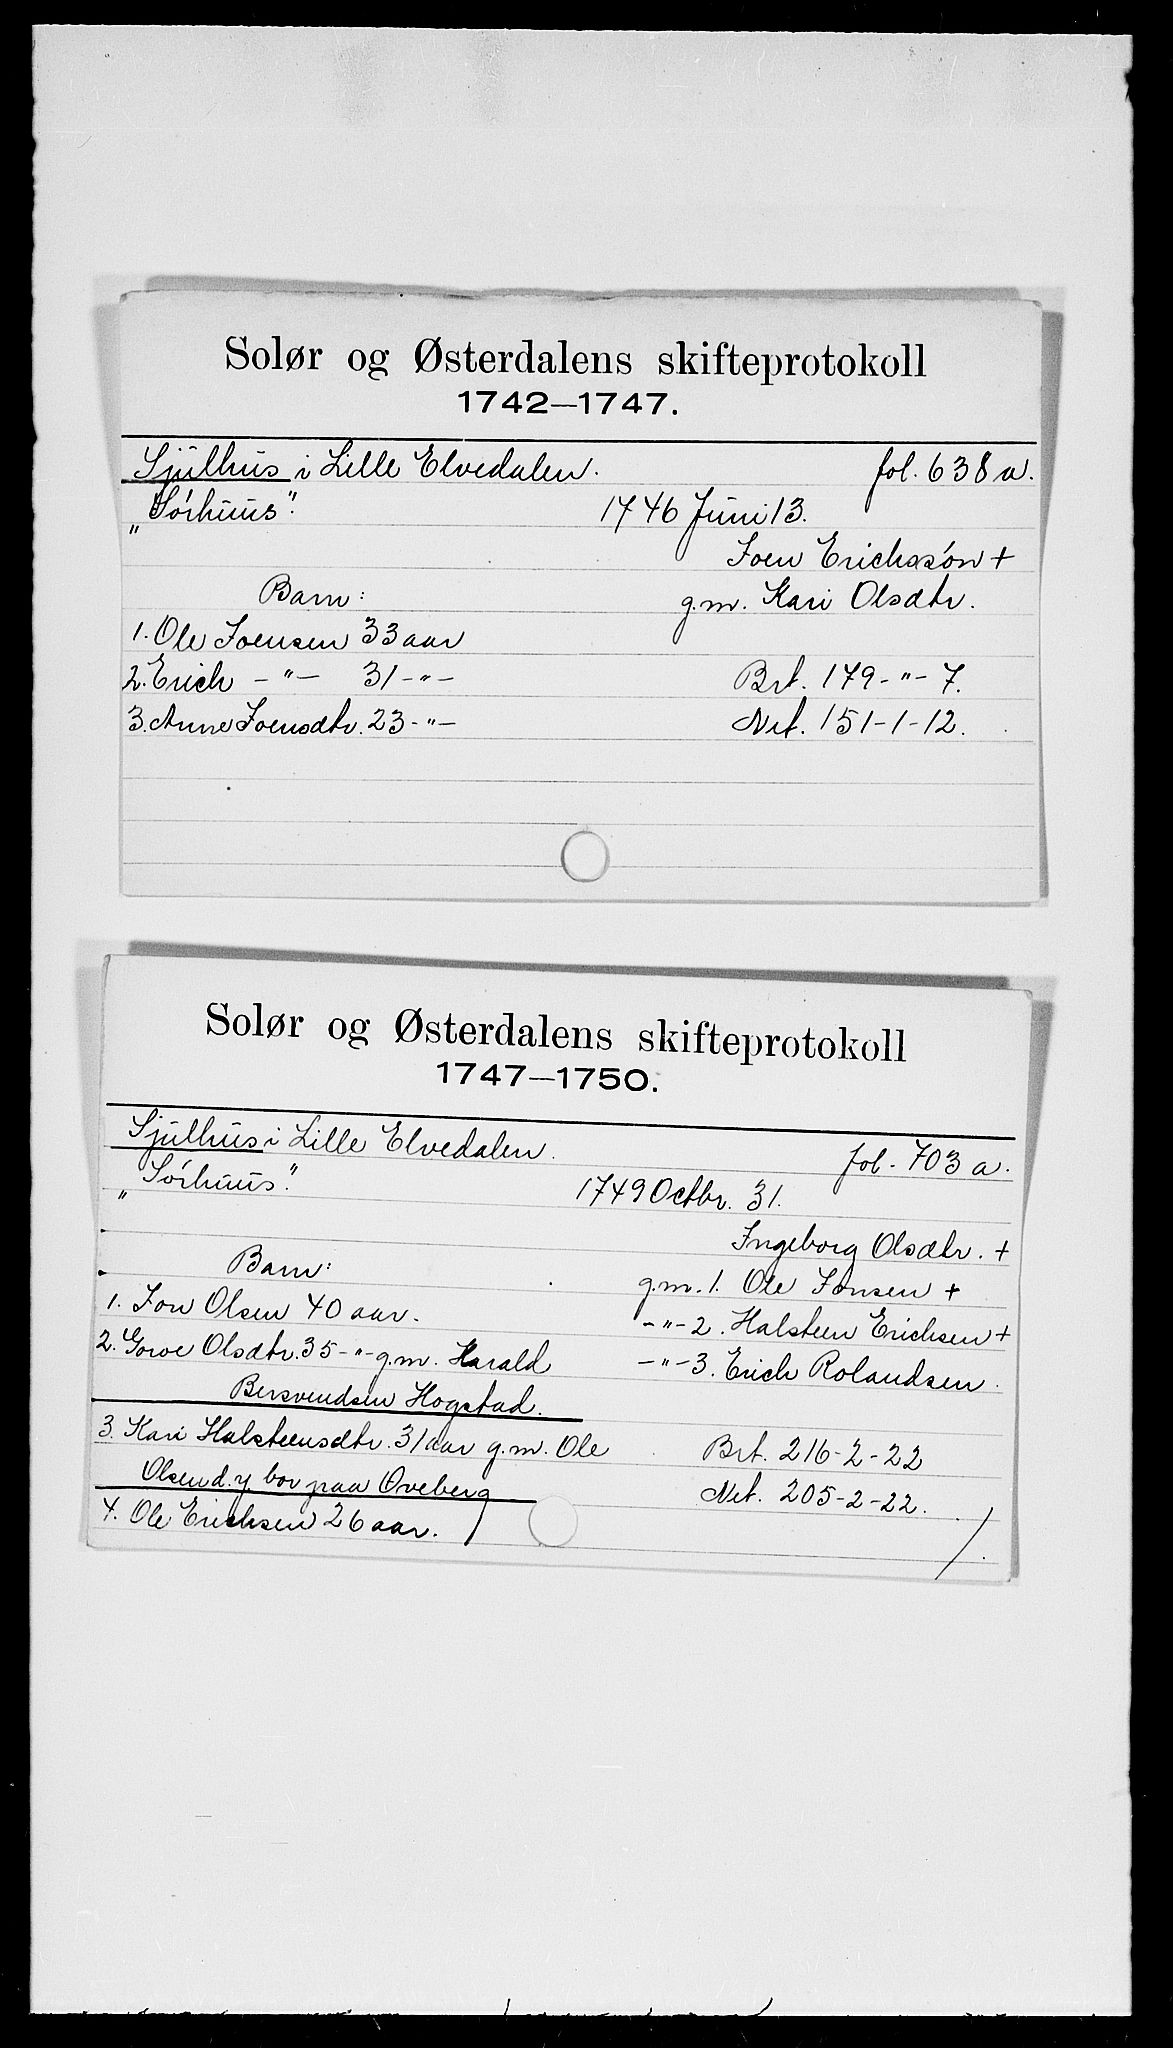 Solør og Østerdalens skifteprotokoll
1742—1747.
Sjülhüs i Lille Elvedalen. fol. 638 a.
„Sørhuus". 1746 Juni 13.
Joen Erichssøn +
Barn: g.m. Kari Olsdtr.
1. Ole Joensen 33 aar
2. Erich -"- 31 -"- Brt. 179-"-7.
3. Anne Joensdtr. 23 -"- Net. 151-1-12.
Solør og Østerdalens skifteprotokoll
1747—1750.
Sjülhüs i Lille Elvedalen. fol. 703 a.
„Sørhuus". 1749 Octbr. 31.
Ingeborg Olsdtr. +
Barn: g.m. 1. Ole Jonsen +
1. Jon Olsen 40 aar. -"- 2. Halsteen Erichsen +
2. Goroe Olsdtr. 35 -"- g.m. Harald -"- 3. Erich Rolandsen.
Bersvendsen Hogstad.
3. Kari Halsteensdtr. 31 aar g.m. Ole Brt. 216-2-22
Olsen d.y. bor paa Oveberg Net. 205-2-22.
4. Ole Erichsen 26 aar.